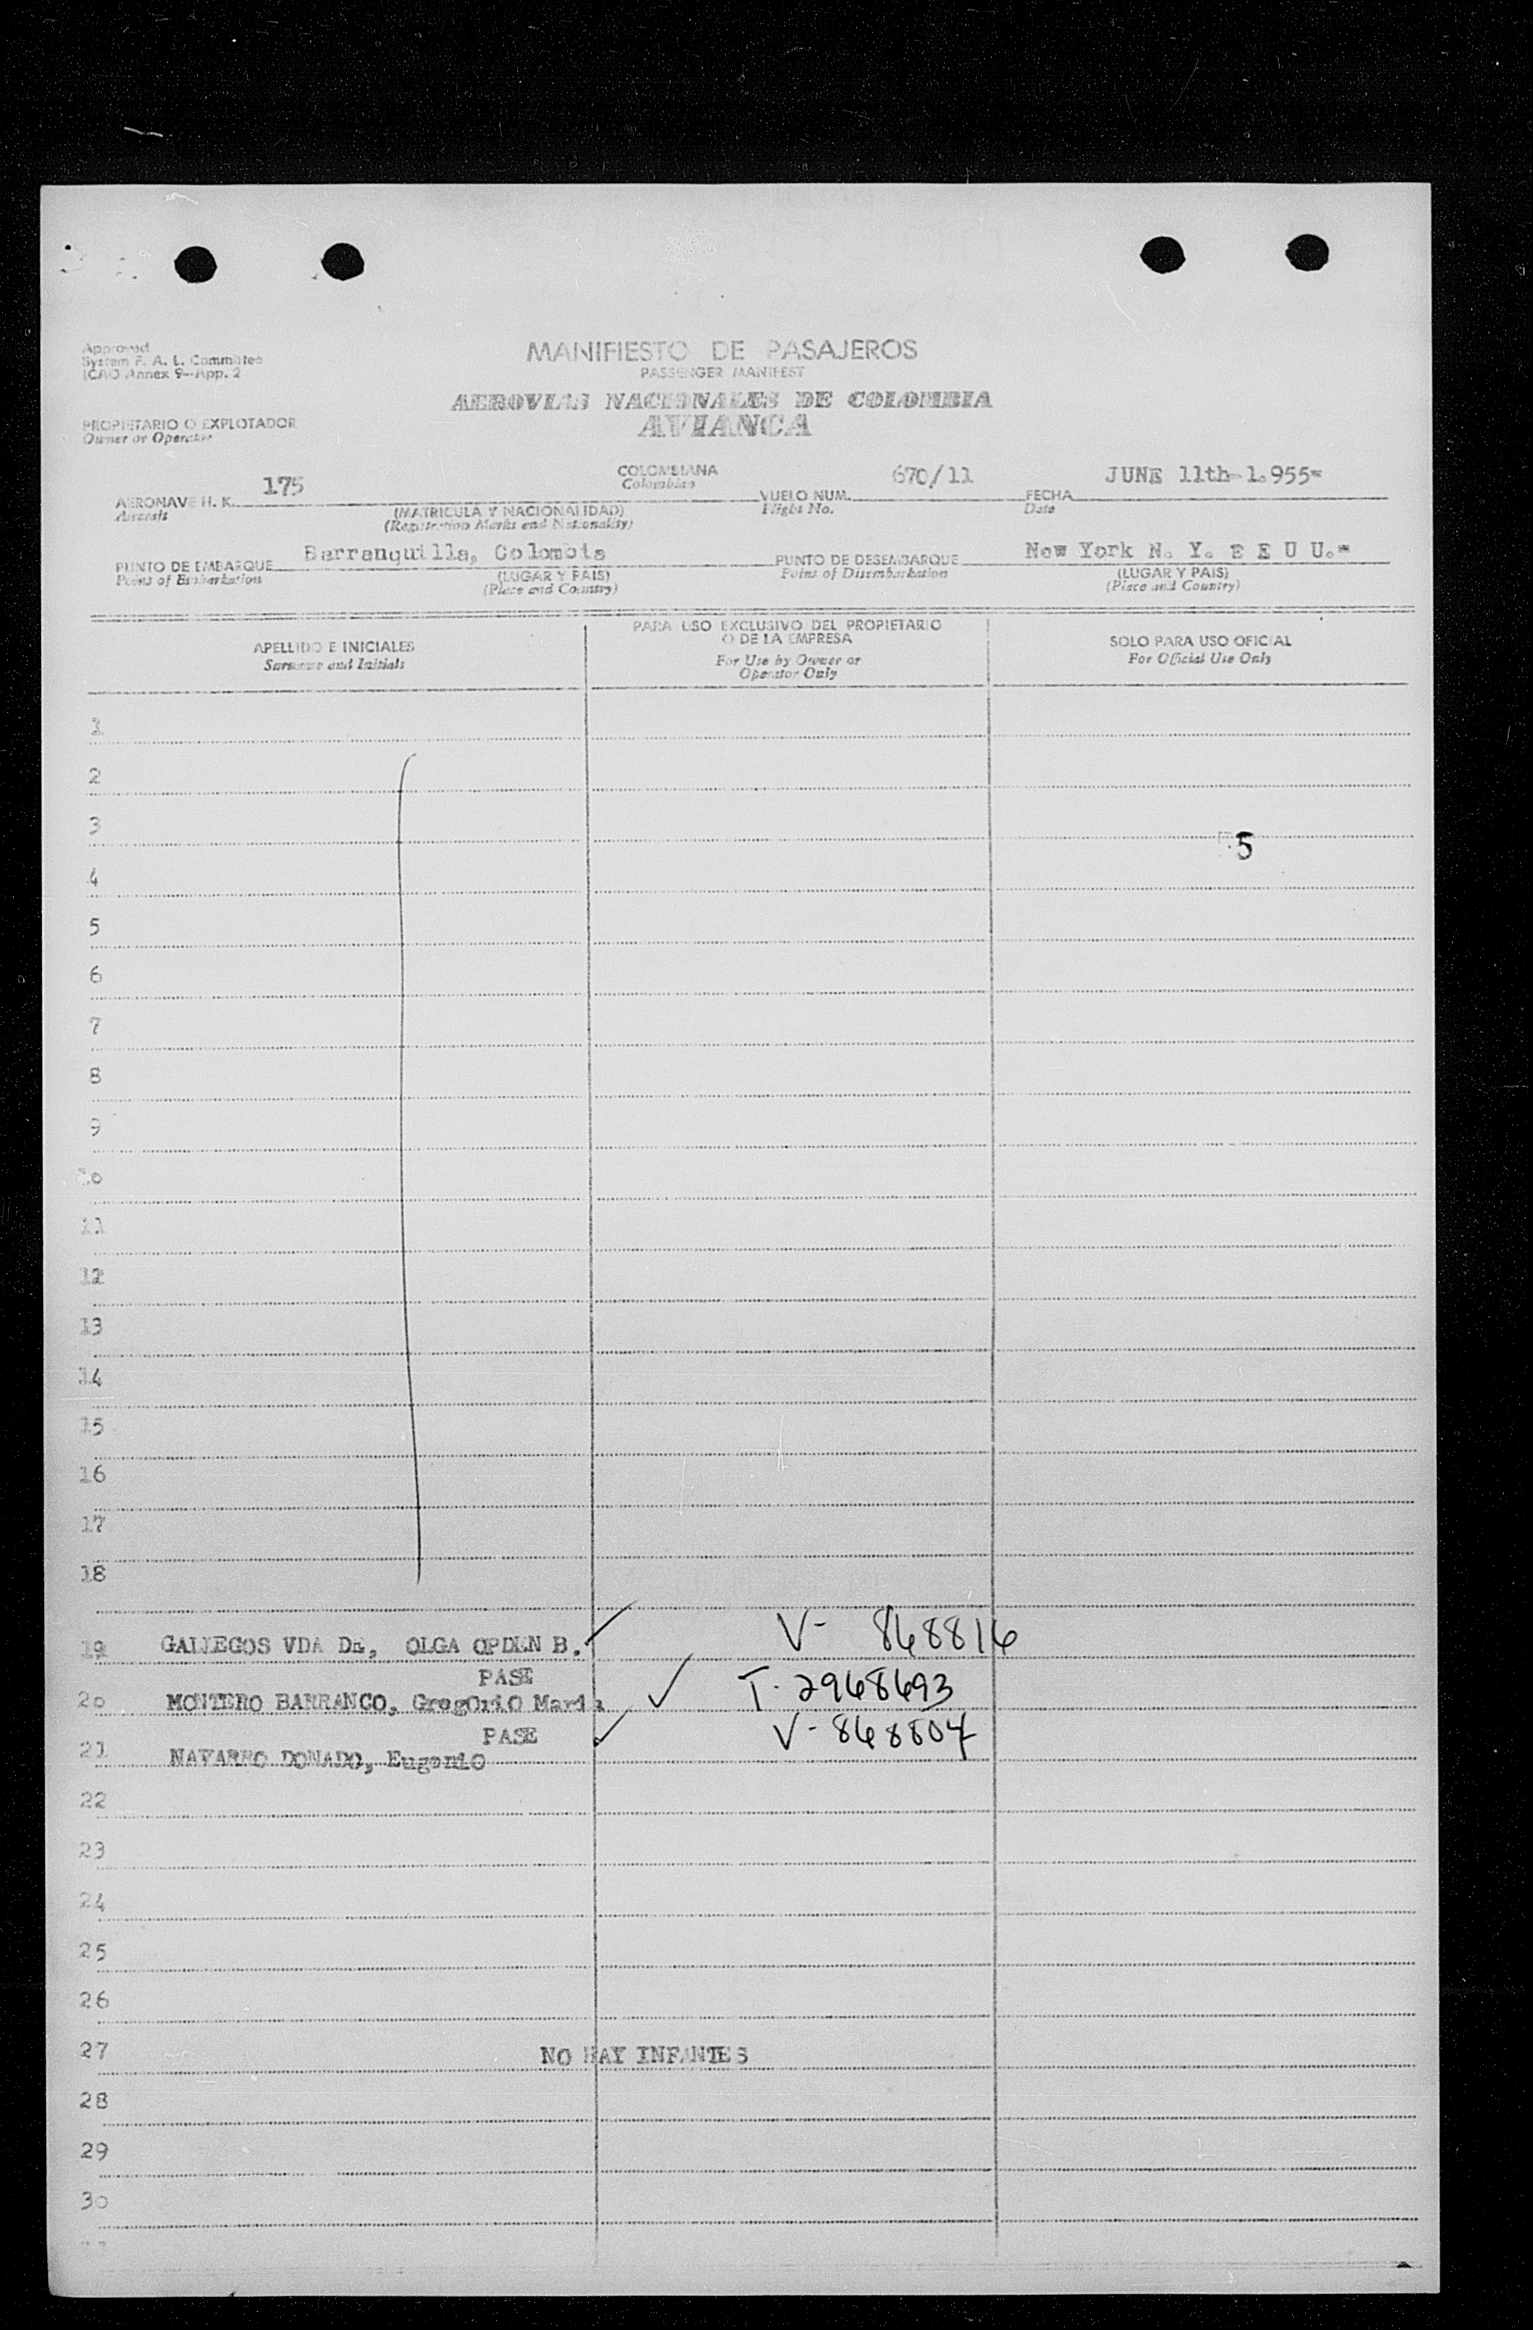 Approved
System F. A. L. Committee
ICAO Annex 9—App. 2
MANIFIESTO DE PASAJEROS
PASSENGER MANIFEST
AEROVIAS NACIONALES DE COLOMBIA
AVIANCA
PROPIETARIO O EXPLOTADOR
Owner or Operator
AERONAVE H. K. 175 COLOMBIANA VUELO NUM. 670/11 FECHA JUNE 11th-1.955=
Aircraft Colombian Flight No. Date
(MATRICULA Y NACIONALIDAD)
(Registration Marks and Nationality)
PUNTO DE EMBARQUE Barranquilla, Colombia PUNTO DE DESEMBARQUE New York N. Y. E E U U.=
Point of Embarkation (LUGAR Y PAIS) Point of Disembarkation (LUGAR Y PAIS)
(Place and Country) (Place and Country)
APELLIDO E INICIALES
Surname and Initials
PARA USO EXCLUSIVO DEL PROPIETARIO
O DE LA EMPRESA
For Use by Owner or
Operator Only
SOLO PARA USO OFICIAL
For Official Use Only
1
2
3
5
4
5
6
7
8
9
10
11
12
13
14
15
16
17
18
19 GALLEGOS VDA DE, OLGA OPDEN B. V- 868816
PASE
20 MONTERO BARRANCO, GregOriO Maria T- 2968693
PASE
21 NAVARRO DONADO, EugeniO V- 868807
22
23
24
25
26
27 NO HAY INFANTES
28
29
30